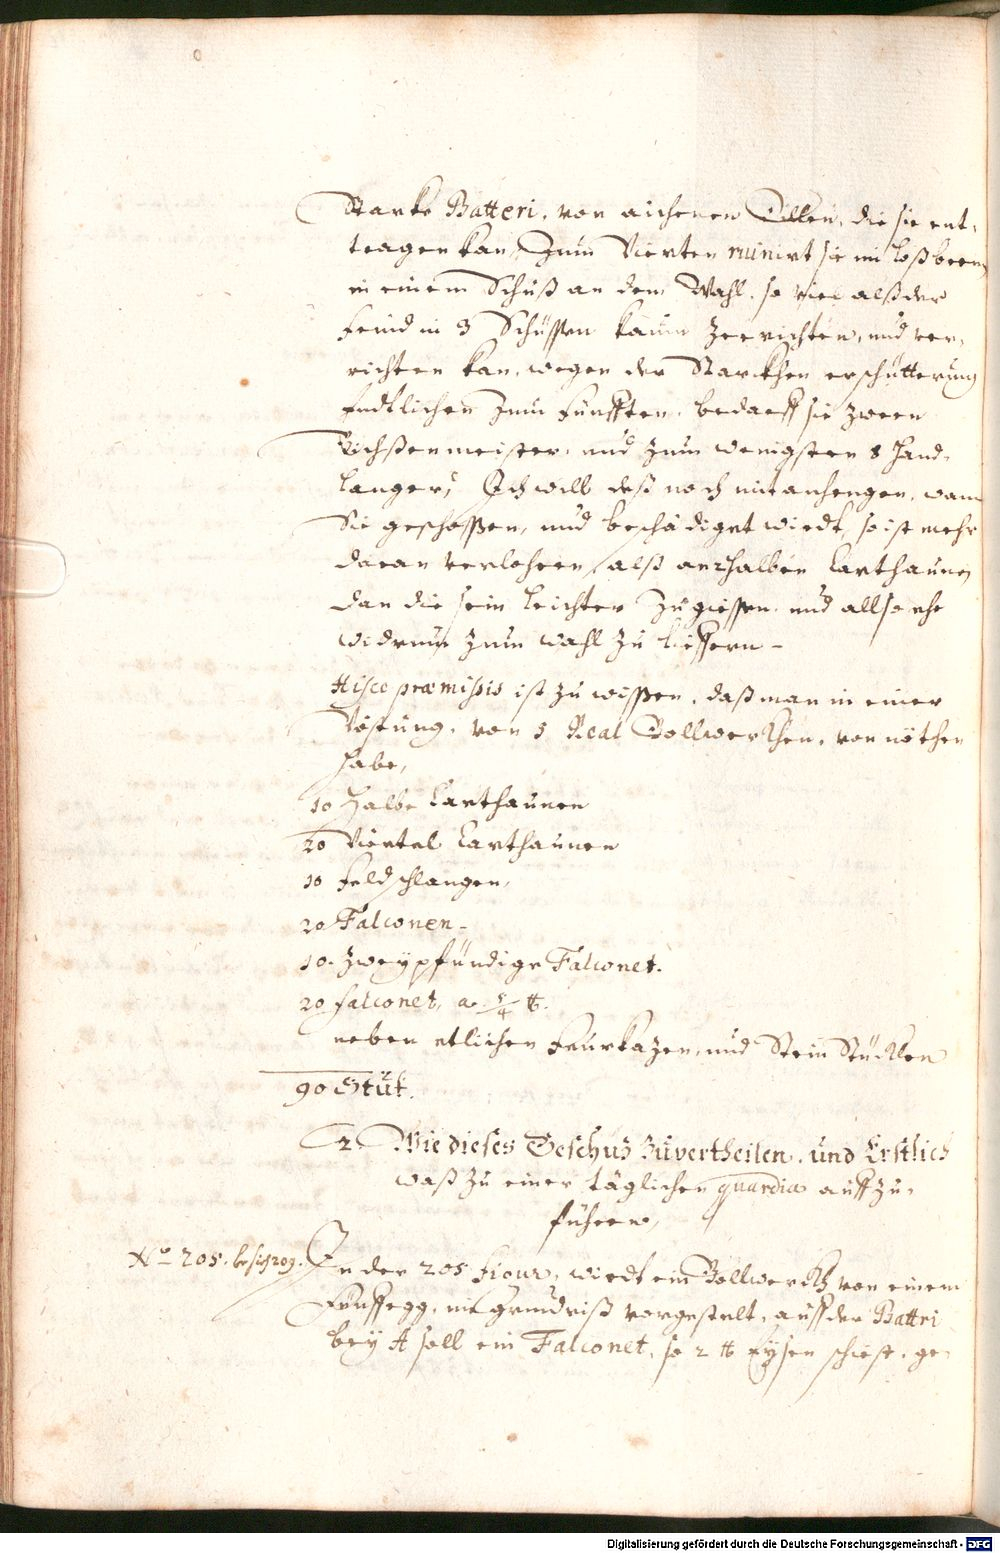 Starke Batteri, von aichenen Dillen, die sie ent-
tragen kan, Zum Vierten ruinirt sie im Loßbrenen
in einem Schuß an dem Wahl, so viel alß der
Feind in 3 Schüssen kaum zerrichten, und ver-
richten kan, wegen der Starckhen erschütterung
Endtlichen zum Fünfften, bedarff sie zween
Pichßenmeister, und zum wenigsten 8 Hand-
langer, Ich will deß noch mit anhengen, wann
Sie geschossen, und beschädiget wirdt, so ist mehr
daran verlohren, alß an 2 halben Carthaunen
dan die sein leichter zu giessen, und allso ehe
widrumb zum wahl zu lieffern –
Hisce præmissis ist zu wissen, daß man in einer
Vöstung, von 5 Real Bollwerckhen, von nöthen
habe,
10 Halbe Carthaunen
20 Viertel Carthaunen
10 Feldschlangen,
20 Falconen –
10. Zweypfündige Falconet.
20 falconet, a 5/4 ℔.
neben etlichen Feurkazen, und Stein Stücklen
90 Stuk.
2. Wie dieses Geschuz zuvertheilen, und Erstlich
waß zu einer täglichen guardia auff zu-
führen,
No 205. besich 209. In der 205 Figur, wirdt ein Bollwerckh von einem
Fünffegg, im grundriß vorgestelt, auff der Battri
bey A soll ein Falconet, so 2 ℔ Eysen schiest, ge-
Digitalisierung gefördert durch die Deutsche Forschungsgemeinschaft - DFG